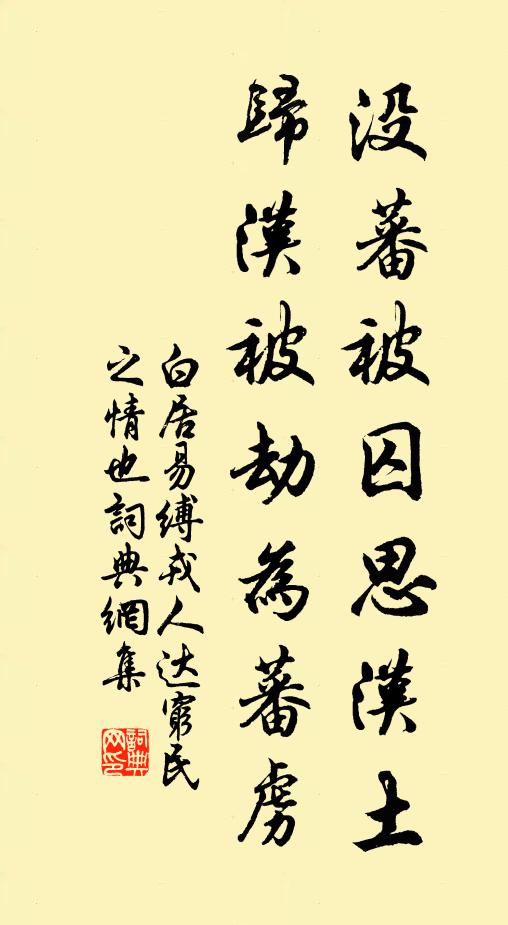 没蕃被囚思漢土
歸漢被劫為蕃虜
白居易縛戎人达窮民
之情也詞典網集
詞典
网印